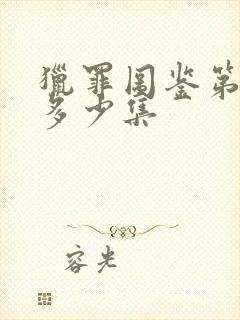 獵罪图鉴第
多少集
容光